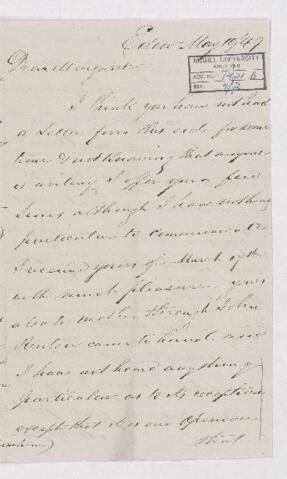 Edinr May 10/49
McGILL UNIVERSITY
ARCHIVES
ACC. NO. 1421 B
REF.
Dear Margaret
I think you have not had
a letter from this side for some
time & not knowing that anyone
is writing I offer you a few
lines although I have nothing
particular to communicate
I received yours of March
with much pleasure yours
also to mother through John
Renton came to hand and
I have not heard anything
particular as to its reception
except that it is our opinion
that